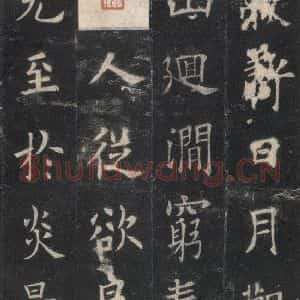 虧日月觀
山廻澗窮泰
人從欲良
尤至於炎景
Shufawang.CN